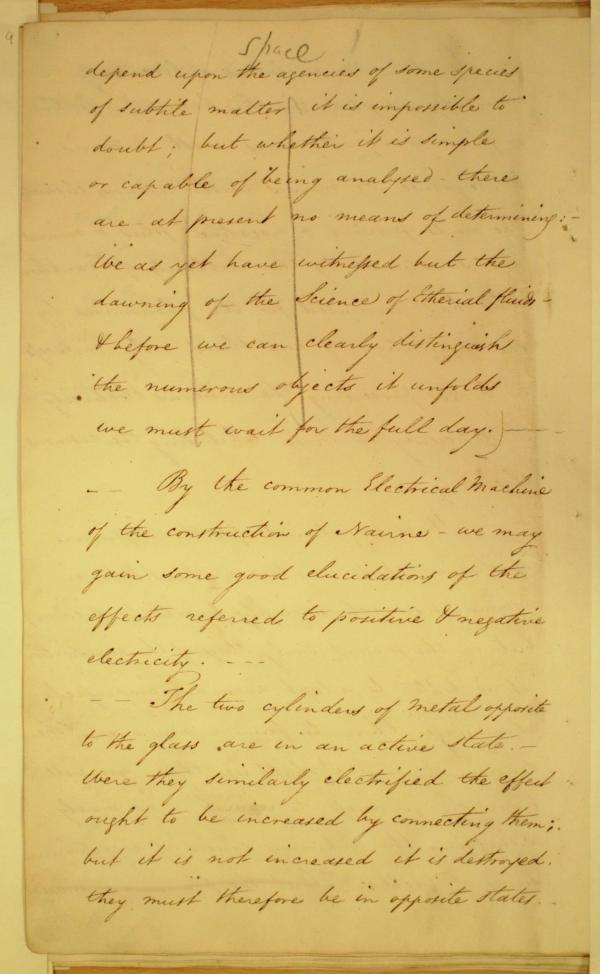 9
Space
depend upon the agencies of some species
of subtile matter it is impossible to
doubt; but whether it is simple
or capable of being analysed - there
are - at present no means of determining: -
We as yet have witnessed but the
dawning of the Science of Etherial fluids -
& before we can clearly distinguish
the numerous objects it unfolds
we must wait for the full day.) ——
— By the common Electrical Machine
of the construction of Nairne - we may
gain some good elucidations of the
effects referred to positive & negative
electricity. - - -
- - The two cylinders of Metal opposite
to the glass are in an active state. -
Were they similarly electrified the effect
ought to be increased by connecting them;
but it is not increased it is destroyed.
they must therefore be in opposite states. -